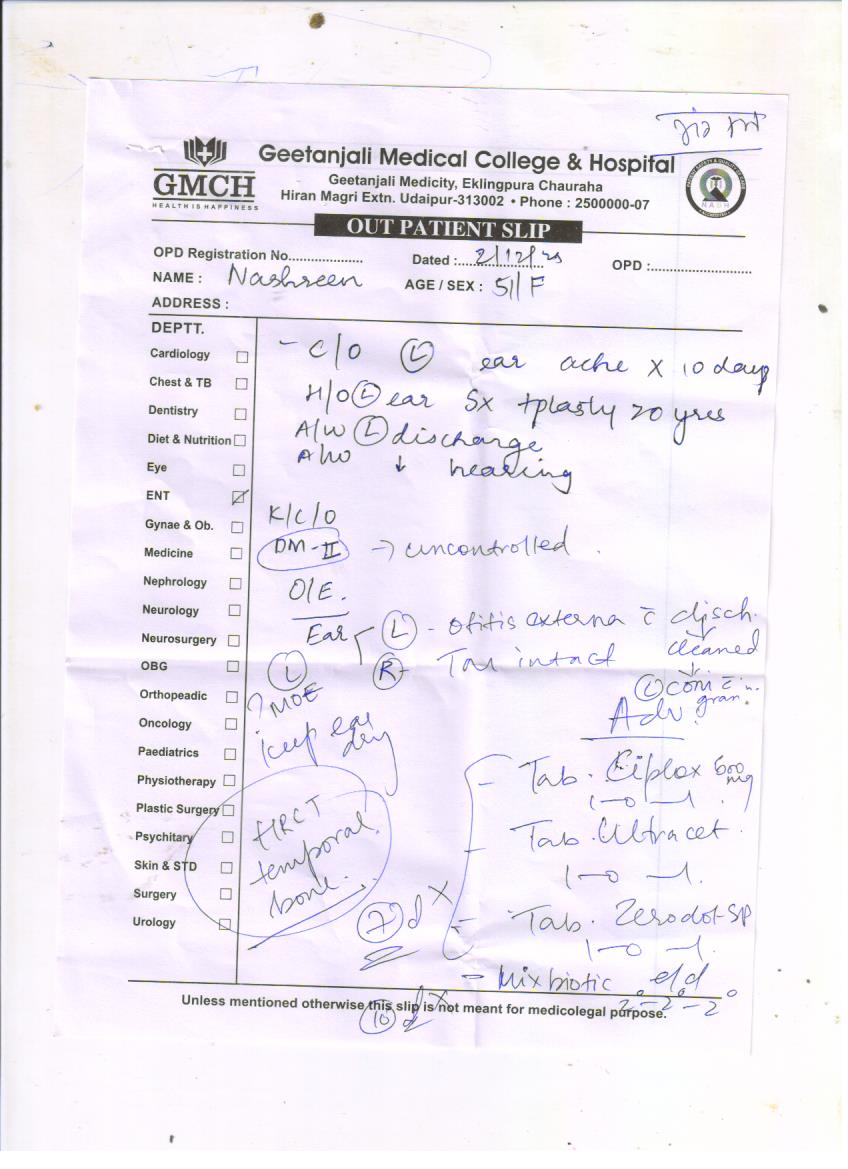 Geetanjali Medical College & Hospital
GMCH
HEALTH IS HAPPINESS
Geetanjali Medicity, Eklingpura Chauraha
Hiran Magri Extn. Udaipur-313002 • Phone : 2500000-07
NABH
OUT PATIENT SLIP
OPD Registration No....................
Dated : 2/12/25
OPD :...........................
NAME : Nashreen
AGE / SEX : 51/F
ADDRESS :
DEPTT.
Cardiology
Chest & TB
Dentistry
Diet & Nutrition
Eye
ENT
Gynae & Ob.
Medicine
Nephrology
Neurology
Neurosurgery
OBG
Orthopeadic
Oncology
Paediatrics
Physiotherapy
Plastic Surgery
Psychitary
Skin & STD
Surgery
Urology
- C/O (L) ear ache x 10 days
H/O (L) ear Sx tplasty 20 yrs
A/W (L) discharge
A/W ↓ hearing
K/C/O
DM-II → uncontrolled.
O/E.
Ear (L) - Otitis externa c̄ disch.
cleaned
(R) - TM intact
(L) COM c̄
gran.
(L)
? MOE
keep ear
dry
Adv.
HRCT
temporal
bone.
- Tab. Ciplox 500 mg
1-0-1.
- Tab. Ultracet.
1-0-1.
- Tab. Zerodol-SP
1-0-1.
(7)d x
- Mixbiotic e/d
2°-2°-2°
(10) d x
Unless mentioned otherwise this slip is not meant for medicolegal purpose.